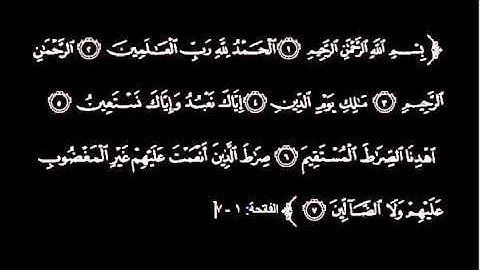 ﴿ بِسْمِ اللَّهِ الرَّحْمَٰنِ الرَّحِيمِ ١ الْحَمْدُ لِلَّهِ رَبِّ الْعَالَمِينَ ٢ الرَّحْمَٰنِ
الرَّحِيمِ ٣ مَالِكِ يَوْمِ الدِّينِ ٤ إِيَّاكَ نَعْبُدُ وَإِيَّاكَ نَسْتَعِينُ ٥
اهْدِنَا الصِّرَاطَ الْمُسْتَقِيمَ ٦ صِرَاطَ الَّذِينَ أَنْعَمْتَ عَلَيْهِمْ غَيْرِ الْمَغْضُوبِ
عَلَيْهِمْ وَلَا الضَّالِّينَ ٧ ﴾ الفاتحة: ١ - ٧